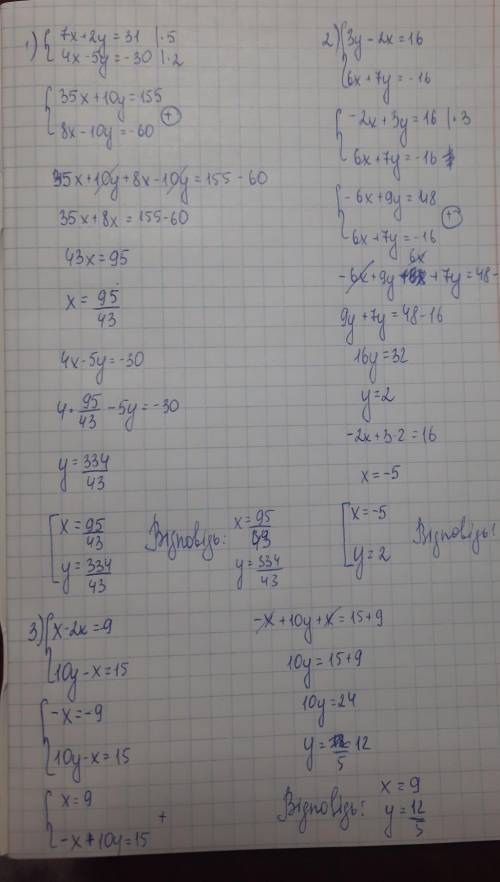 1) { 7x+2y=31 | ·5
4x-5y=-30 | ·2
{ 35x+10y=155
8x-10y=-60 (+)
35x+10y+8x-10y=155-60
35x+8x=155-60
43x=95
x=95/43
4x-5y=-30
4·95/43-5y=-30
y=334/43
[ x=95/43
y=334/43
Відповідь: x=95/43
y=334/43
2) { 3y-2x=16
6x+7y=-16
{ -2x+3y=16 | ·3
6x+7y=-16
{ -6x+9y=48
6x+7y=-16 (+)
-6x+9y+6x+7y=48-
9y+7y=48-16
16y=32
y=2
-2x+3·2=16
x=-5
[ x=-5
y=2
Відповідь:
3) { x-2x=9
10y-x=15
{ -x=-9
10y-x=15
{ x=9
-x+10y=15 +
-x+10y+x=15+9
10y=15+9
10y=24
y=12/5
Відповідь: x=9
y=12/5